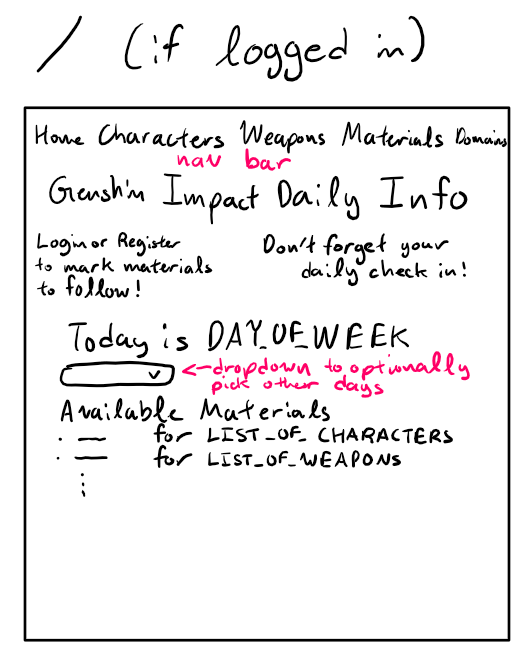 / (if logged in)
Home Characters Weapons Materials Domains
nav bar
Genshin Impact Daily Info
Login or Register
to mark materials
to follow!
Don't forget your
daily check in!
Today is DAY_OF_WEEK
<-dropdown to optionally
pick other days
Available Materials
. — for LIST_OF_CHARACTERS
. — for LIST_OF_WEAPONS
⋮